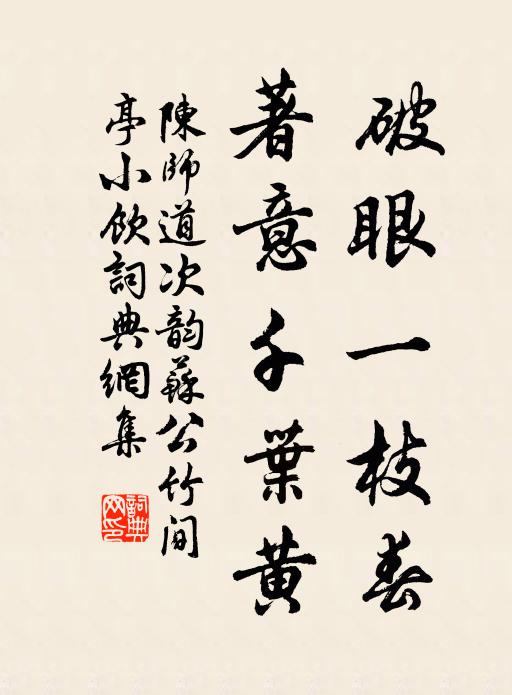 破眼一枝春
著意千葉黄
陳師道次韵蘇公竹间
亭小飲詞典網集
詞典網印